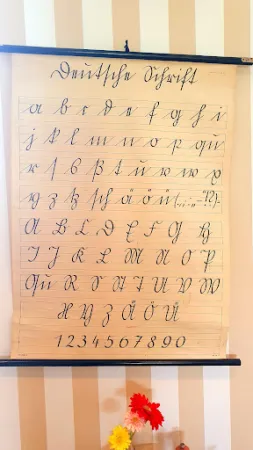 Deutsche Schrift
a b c d e f g h i
j k l m n o p qu
r s ß t u v w x
y z tz sch ä ö ü
A B C D E F G H
I J K L M N O P
Qu R S St T U V W
X Y Z Ä Ö Ü
1 2 3 4 5 6 7 8 9 0